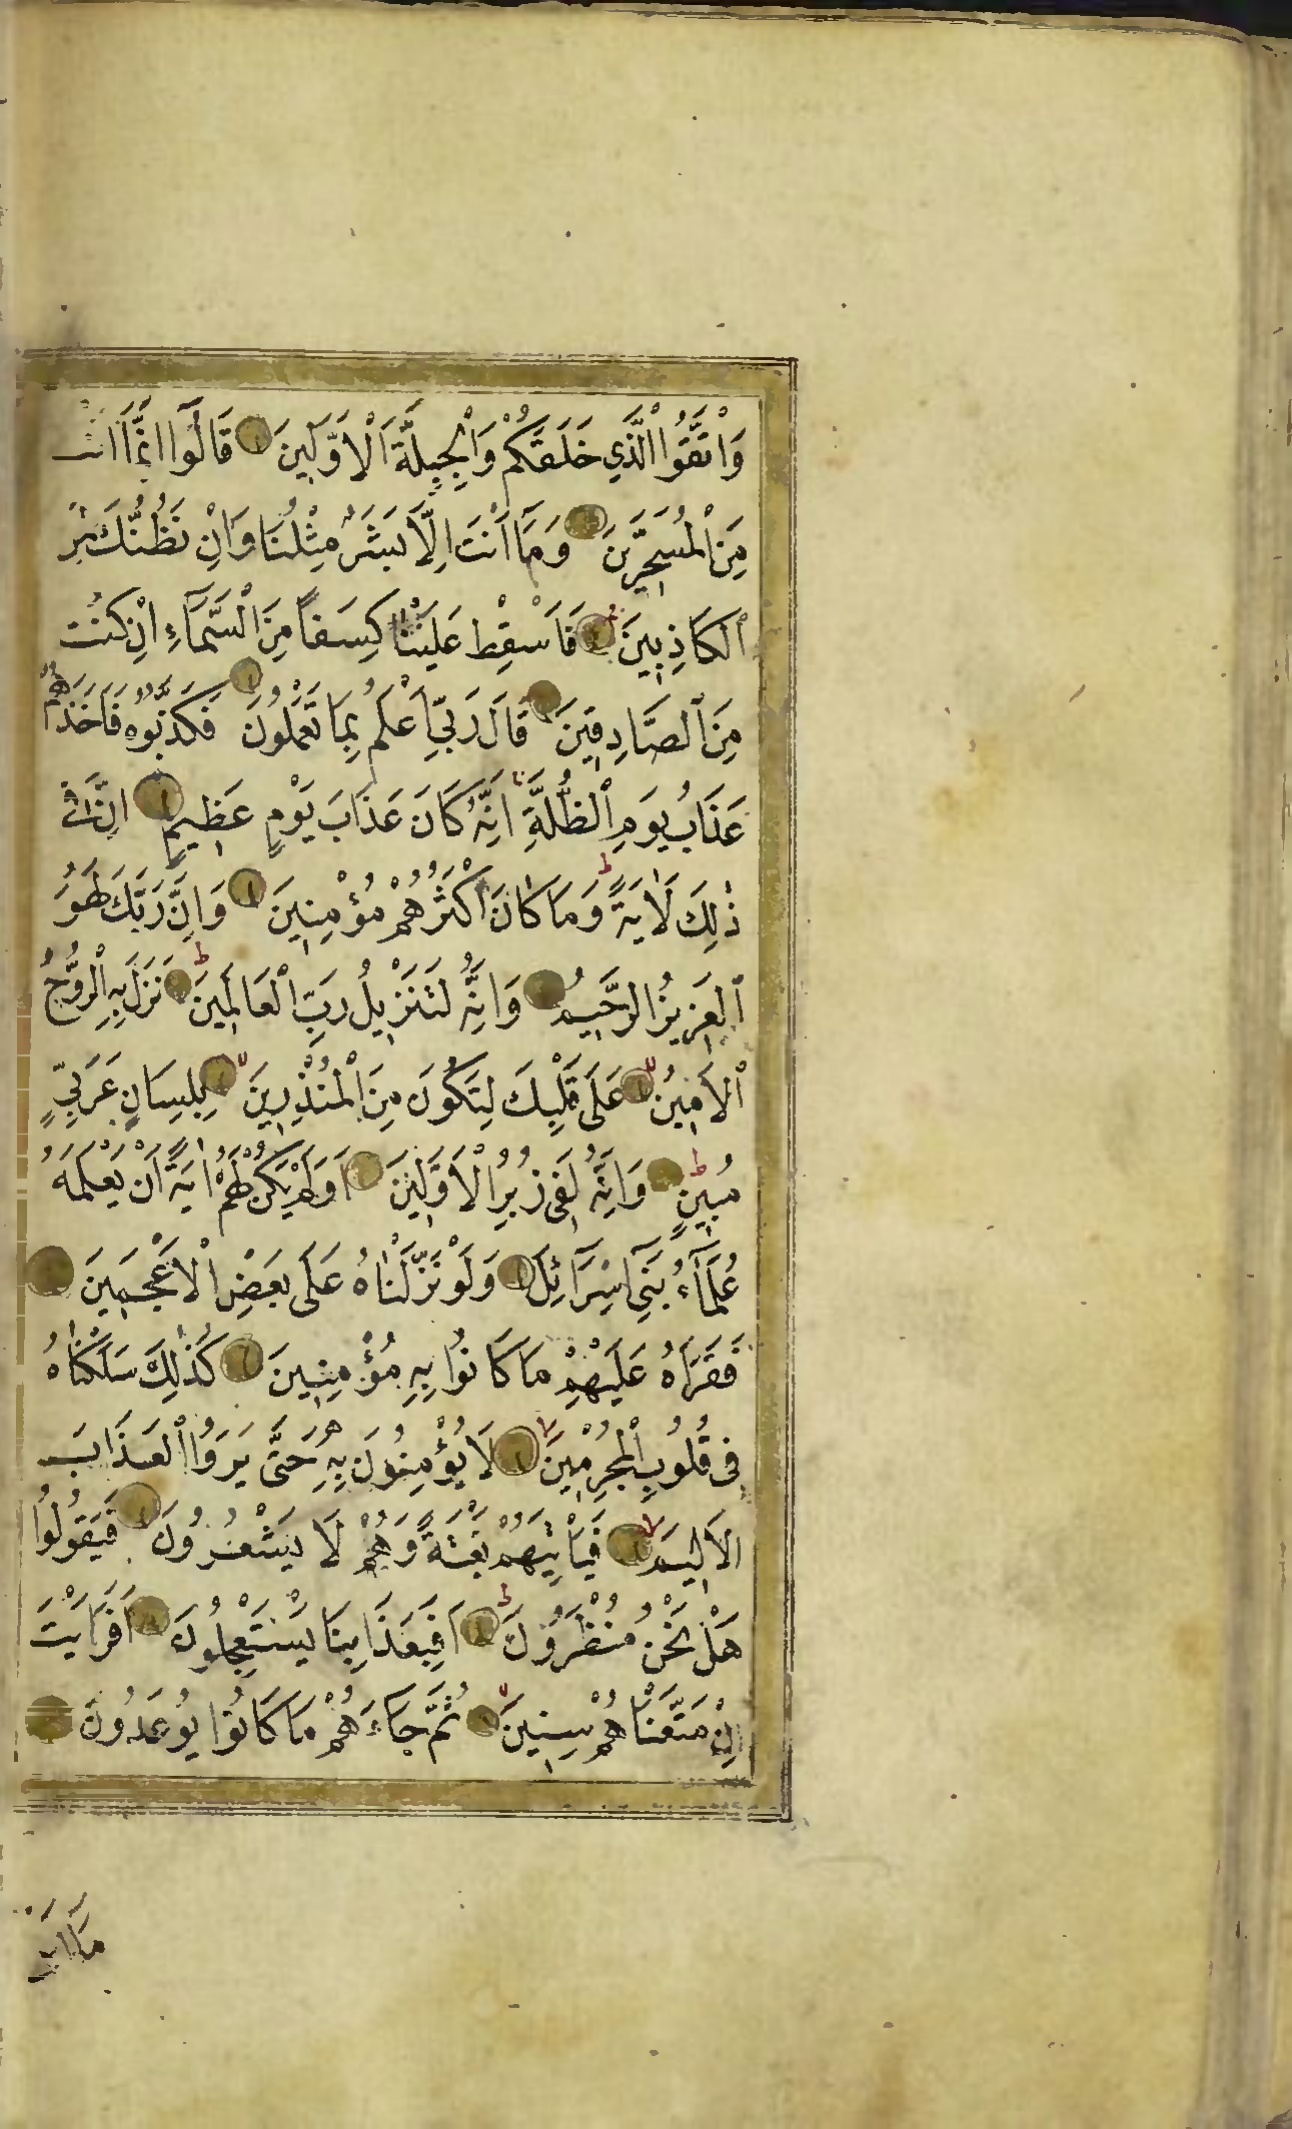 وَاتَّقُوا الَّذِي خَلَقَكُمْ وَالْجِبِلَّةَ الْاَوَّلِينَ قَالُٓوا اِنَّمَٓا اَنْتَ
مِنَ الْمُسَحَّرِينَ وَمَٓا اَنْتَ اِلَّا بَشَرٌ مِثْلُنَا وَاِنْ نَظُنُّكَ لَمِنَ
الْكَاذِبِينَ فَاَسْقِطْ عَلَيْنَا كِسَفاً مِنَ السَّمَٓاءِ اِنْ كُنْتَ
مِنَ الصَّادِقِينَ قَالَ رَبِّٓي اَعْلَمُ بِمَا تَعْمَلُونَ فَكَذَّبُوهُ فَاَخَذَهُمْ
عَذَابُ يَوْمِ الظُّلَّةِ اِنَّهُ كَانَ عَذَابَ يَوْمٍ عَظِيمٍ اِنَّ فِي
ذٰلِكَ لَاٰيَةً وَمَا كَانَ اَكْثَرُهُمْ مُؤْمِنِينَ وَاِنَّ رَبَّكَ لَهُوَ
الْعَزِيزُ الرَّحِيمُ وَاِنَّهُ لَتَنْزِيلُ رَبِّ الْعَالَمِينَ نَزَلَ بِهِ الرُّوحُ
الْاَمِينُ عَلَى قَلْبِكَ لِتَكُونَ مِنَ الْمُنْذِرِينَ بِلِسَانٍ عَرَبِيٍّ
مُبِينٍ وَاِنَّهُ لَفِي زُبُرِ الْاَوَّلِينَ اَوَلَمْ يَكُنْ لَهُمْ اٰيَةً اَنْ يَعْلَمَهُ
عُلَمَٓاءُ بَنِٓي اِسْرَٓائِلَ وَلَوْ نَزَّلْنَاهُ عَلَى بَعْضِ الْاَعْجَمِينَ
فَقَرَاَهُ عَلَيْهِمْ مَا كَانُوا بِهِ مُؤْمِنِينَ كَذٰلِكَ سَلَكْنَاهُ
فِي قُلُوبِ الْمُجْرِمِينَ لَا يُؤْمِنُونَ بِهِ حَتَّى يَرَوُا الْعَذَابَ
الْاَلِيمَ فَيَاْتِيَهُمْ بَغْتَةً وَهُمْ لَا يَشْعُرُونَ فَيَقُولُوا
هَلْ نَحْنُ مُنْظَرُونَ اَفَبِعَذَابِنَا يَسْتَعْجِلُونَ اَفَرَاَيْتَ
اِنْ مَتَّعْنَاهُمْ سِنِينَ ثُمَّ جَاءَهُمْ مَا كَانُوا يُوعَدُونَ